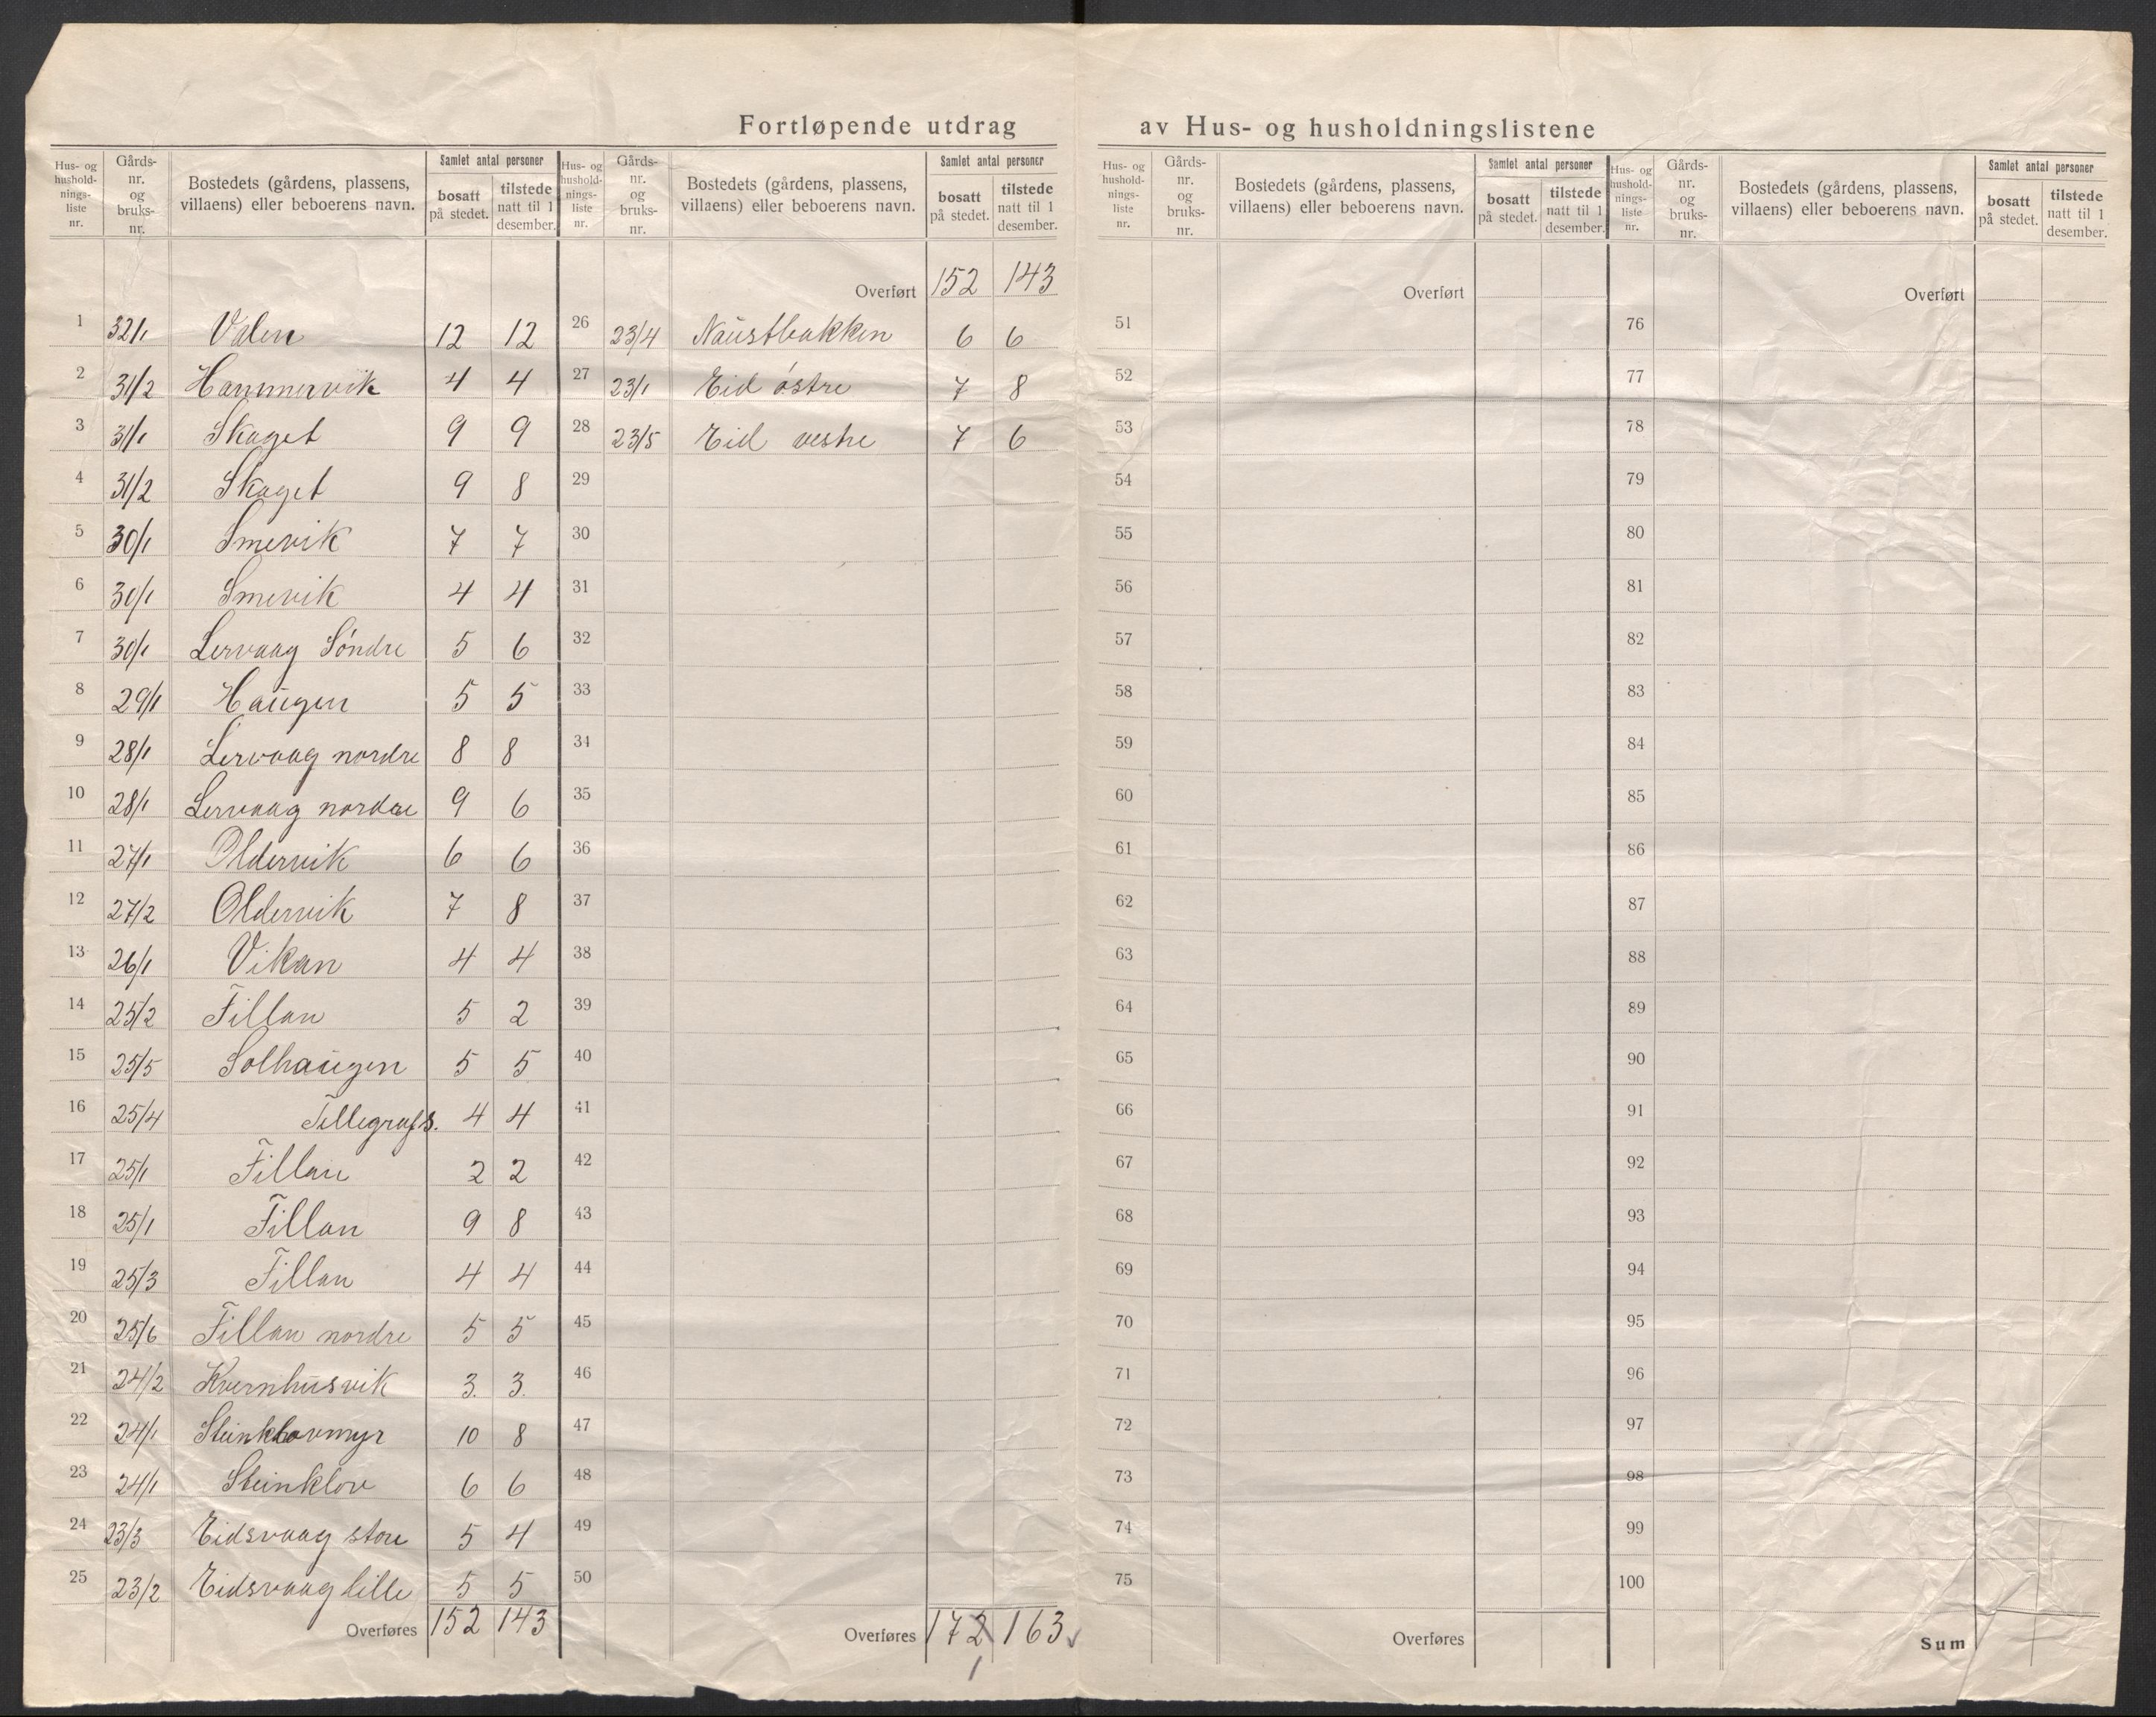 Fortløpende utdrag av Hus- og husholdningslistene
Hus- og hushold-nings-liste nr. | Gårds-nr. og bruks-nr. | Bostedets (gårdens, plassens, villaens) eller beboerens navn. | Samlet antal personer | bosatt på stedet. | tilstede natt til 1 desember.
1 32/1 Valen 12 12
2 31/2 Hammervik 4 4
3 31/1 Skaget 9 9
4 31/2 Skaget 9 8
5 30/1 Smevik 7 7
6 30/1 Smevik 4 4
7 30/1 Lervaag Söndre 5 6
8 29/1 Haugen 5 5
9 28/1 Lervaag nordre 8 8
10 28/1 Lervaag nordre 9 6
11 27/1 Oldervik 6 6
12 27/2 Oldervik 7 8
13 26/1 Vikan 4 4
14 25/2 Fillan 5 2
15 25/5 Solhaugen 5 5
16 25/4 Tellegrafs. 4 4
17 25/1 Fillan 2 2
18 25/1 Fillan 9 8
19 25/3 Fillan 4 4
20 25/6 Fillan nordre 5 5
21 24/2 Kvernhusvik 3. 3.
22 24/1 Steinklovmyr 10 8
23 24/1 Steinklov 6 6
24 23/3 Eidsvaag store 5 4
25 23/2 Eidsvaag lille 5 5
Overføres 152 143
Hus- og hushold-nings-liste nr. | Gårds-nr. og bruks-nr. | Bostedets (gårdens, plassens, villaens) eller beboerens navn. | Samlet antal personer | bosatt på stedet. | tilstede natt til 1 desember.
Overført 152 143
26 23/4 Naustbakken 6 6
27 23/1 Eid östre 7 8
28 23/5 Eid vestre 7 6
29
30
31
32
33
34
35
36
37
38
39
40
41
42
43
44
45
46
47
48
49
50
Overføres 172 163
1
Hus- og hushold-nings-liste nr. | Gårds-nr. og bruks-nr. | Bostedets (gårdens, plassens, villaens) eller beboerens navn. | Samlet antal personer | bosatt på stedet. | tilstede natt til 1 desember.
Overført
51
52
53
54
55
56
57
58
59
60
61
62
63
64
65
66
67
68
69
70
71
72
73
74
75
Overføres
Hus- og hushold-nings-liste nr. | Gårds-nr. og bruks-nr. | Bostedets (gårdens, plassens, villaens) eller beboerens navn. | Samlet antal personer | bosatt på stedet. | tilstede natt til 1 desember.
Overført
76
77
78
79
80
81
82
83
84
85
86
87
88
89
90
91
92
93
94
95
96
97
98
99
100
Sum